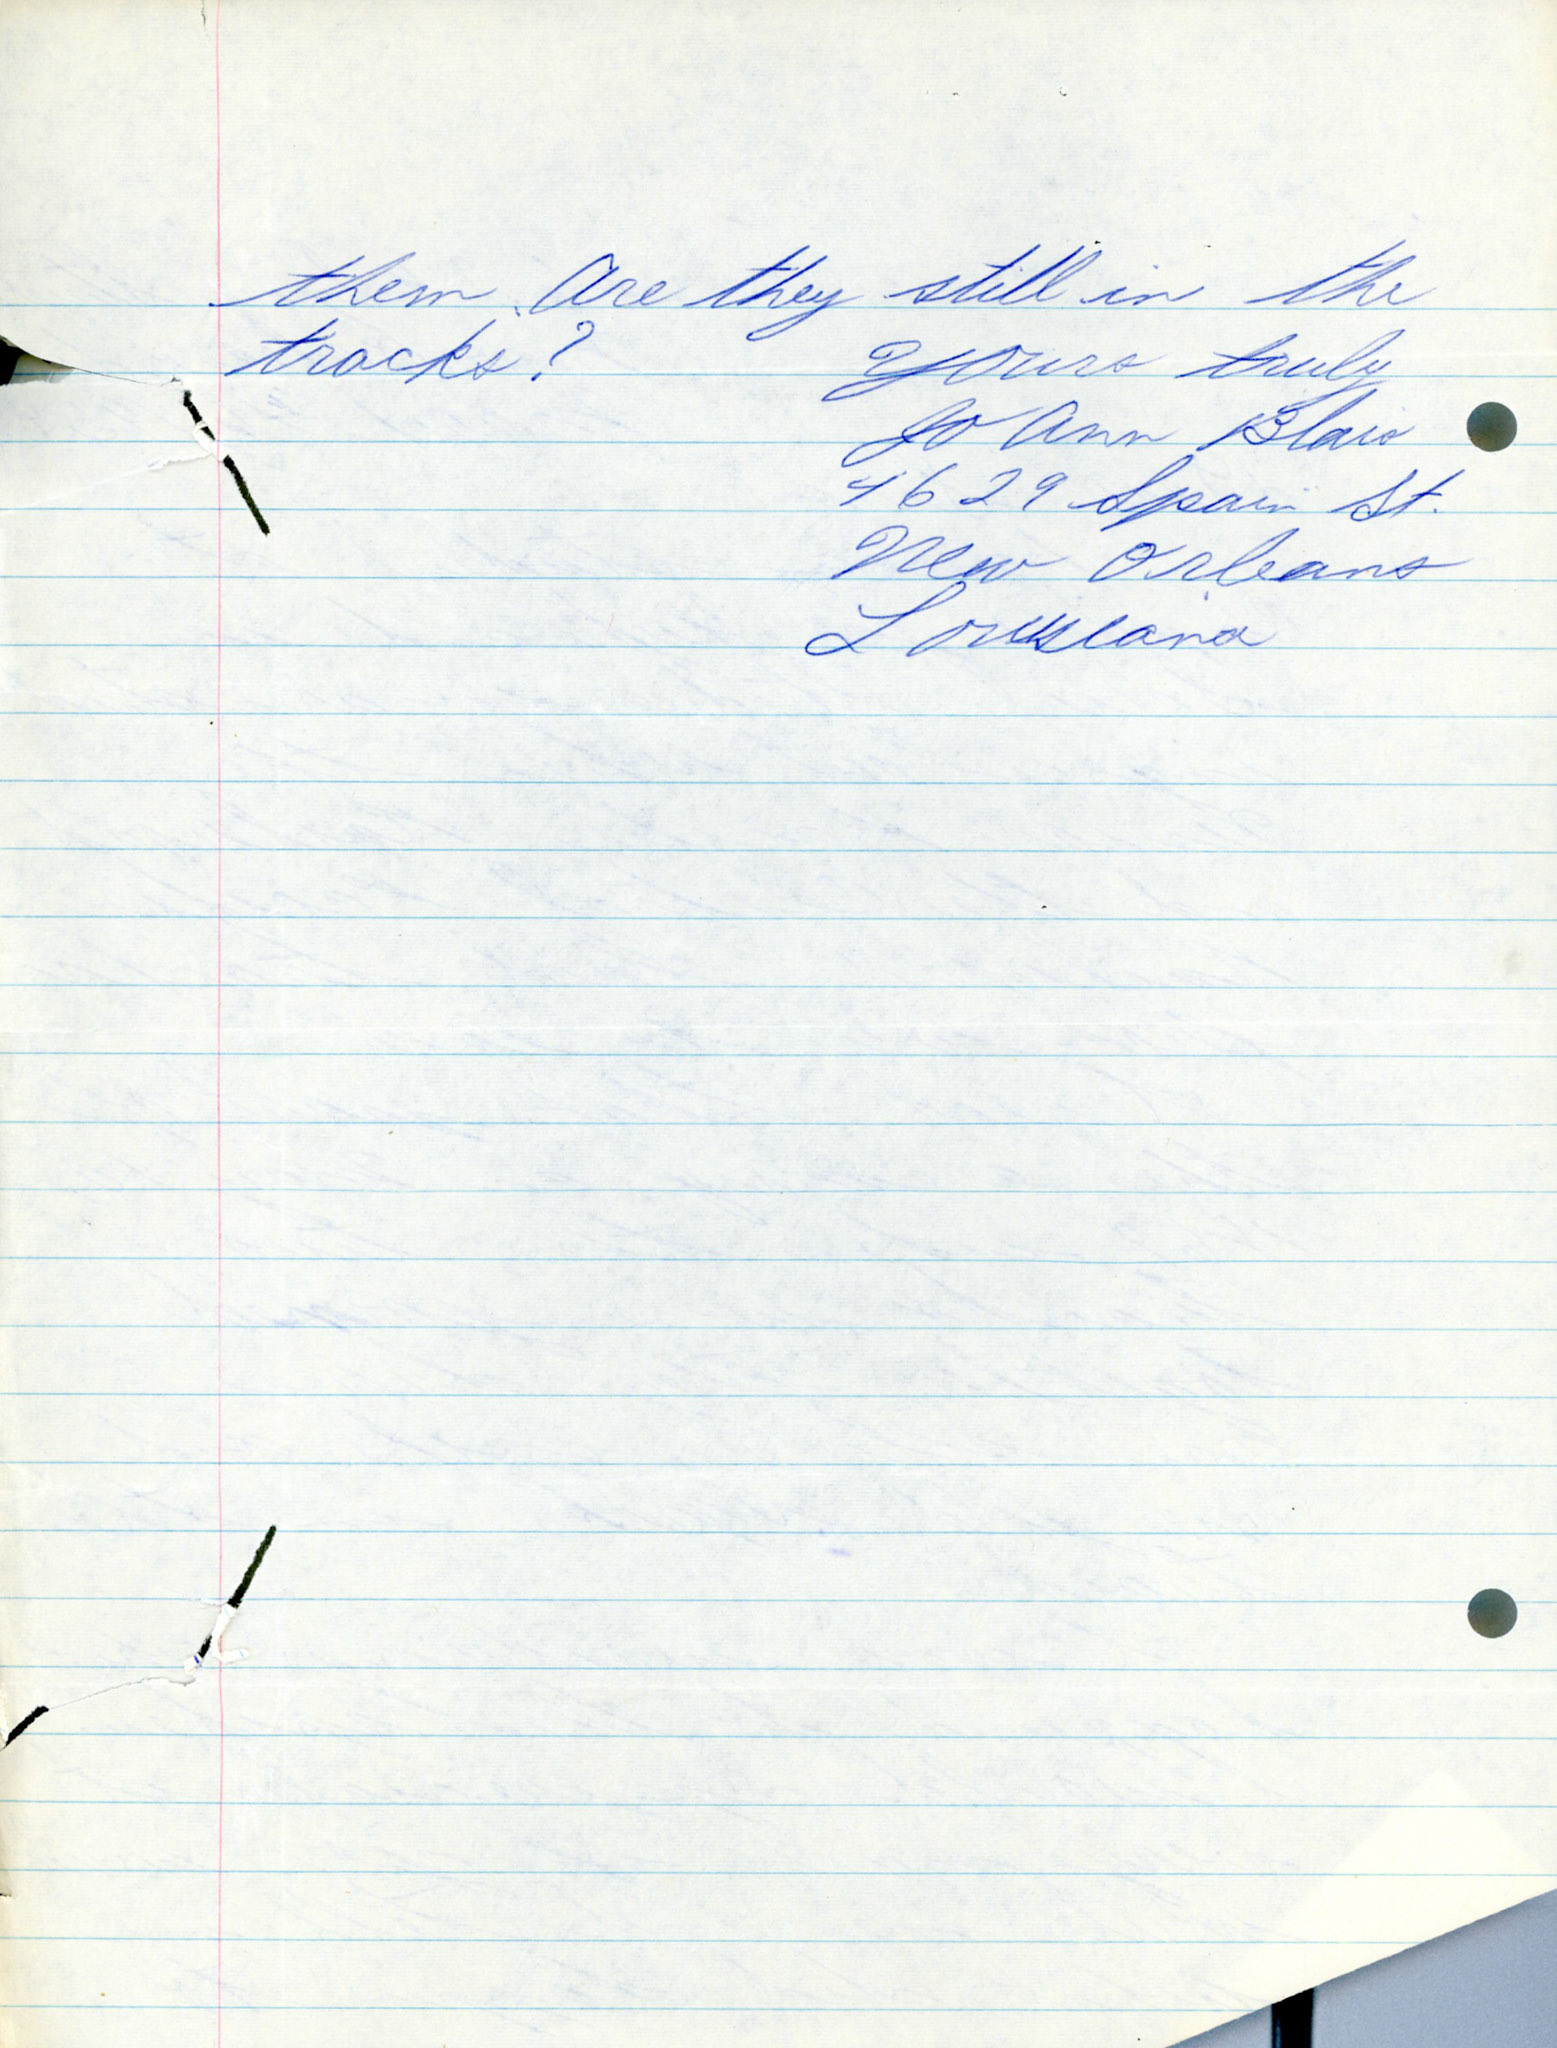 them. Are they still in the
tracks?
Yours truly
Jo Ann Blais
4629 Spain St.
New Orleans
Louisiana